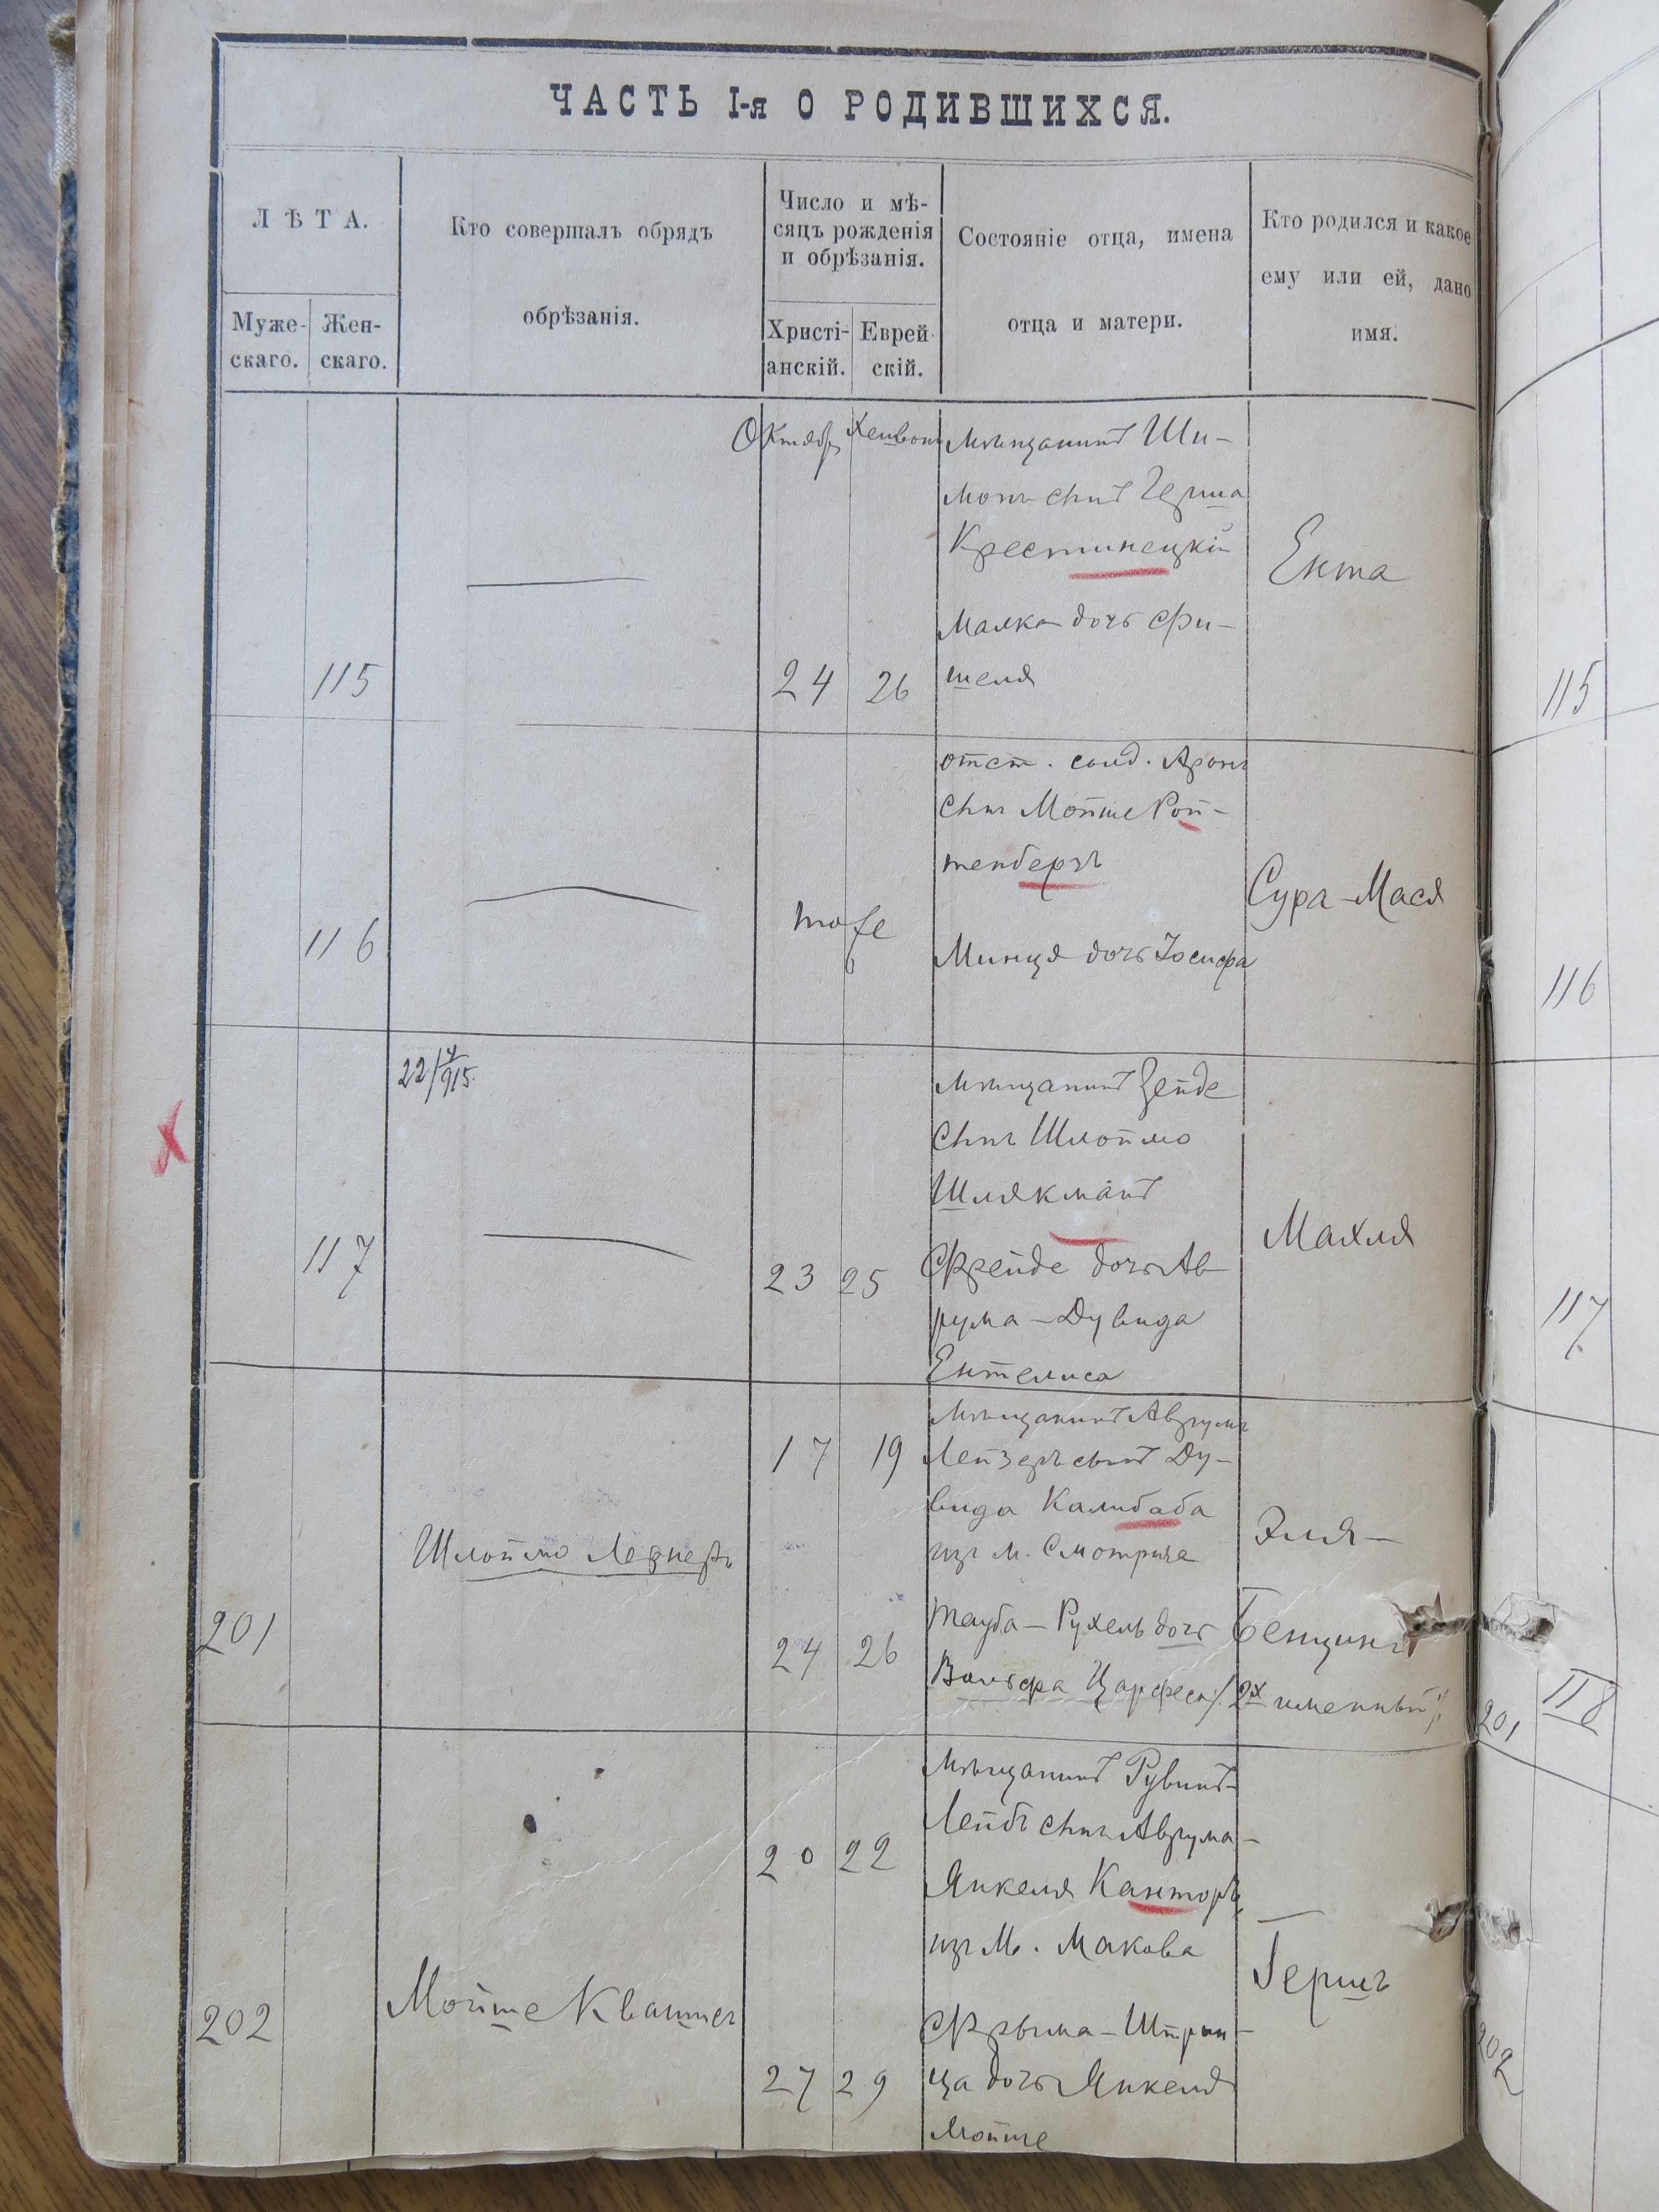 ЧАСТЬ I-я О РОДИВШИХСЯ.
ЛѢТА.
Муже-
скаго.
Жен-
скаго.
Кто совершалъ обрядъ
обрѣзанія.
Число и мѣ-
сяцъ рожденія
и обрѣзанія.
Христі-
анскій.
Еврей-
скій.
Состояніе отца, имена
отца и матери.
Кто родился и какое
ему или ей, дано
имя.
115
Октябр
24
26
мѣщанинъ Ши-
монъ сынъ Герша
Крестинецкій
Малка дочь Фи-
шеля
Ента
115
116
тоже
отст. солд. Аронъ
сынъ Мойше Рой-
тенбергъ
Минця дочь Іосифа
Сура-Мася
116
117
22/V 915.
23
25
мѣщанинъ Зейде
сынъ Шлоймо
Шлякманъ
Фрейде дочь Ав-
рума-Дувида
Ентелиса
Махля
117
201
Шлоймо Лернеръ
17
19
24
26
мѣщанинъ Аврумъ
Лейзеръ сынъ Ду-
вида Калибаба
изъ м. Смотрича
Тауба-Рухель дочь
Вольфа Царфеса
Эля-
Бенционъ
/:2х именный:/
201
118
202
Мойше Квашнеръ
20
22
27
29
мѣщанинъ Рувинъ-
Лейбъ сынъ Аврума-
Янкеля Канторъ
изъ м. Макова
Фрыма-Штрын-
ца дочь Янкеля
Мойше
Гершъ
202